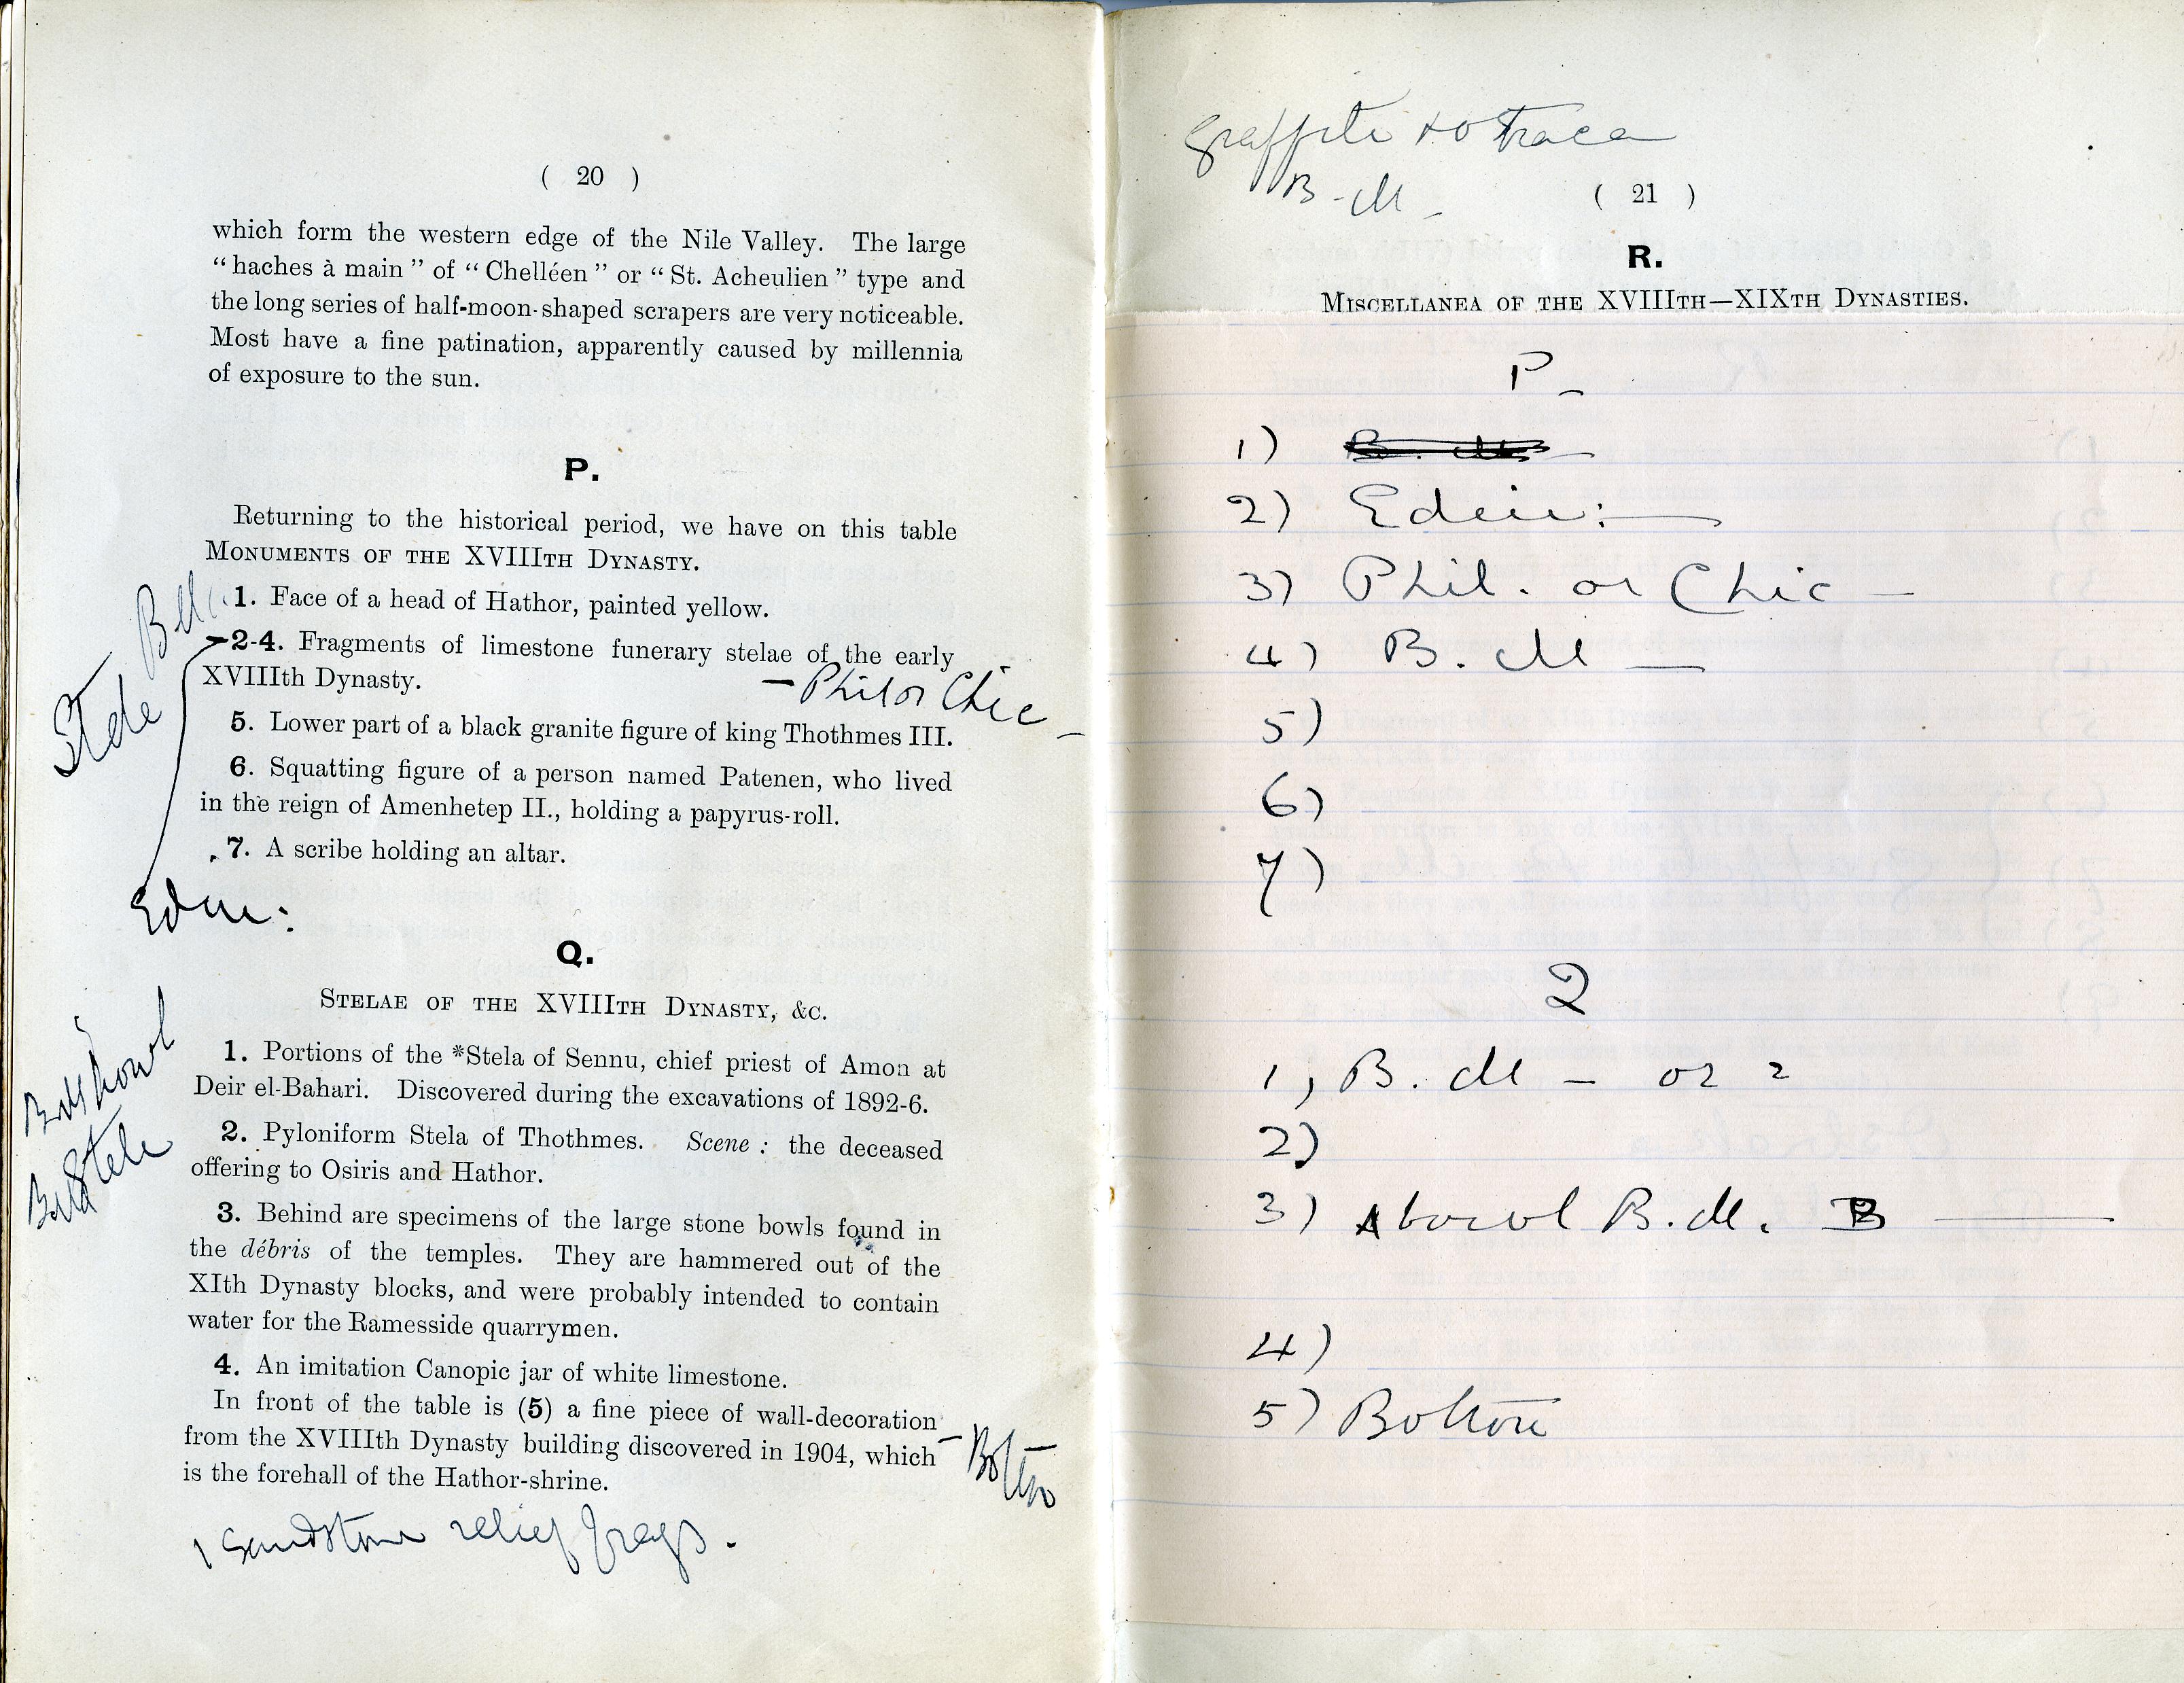 ( 20 )
which form the western edge of the Nile Valley. The large
“haches à main” of “Chelléen” or “St. Acheulien” type and
the long series of half-moon-shaped scrapers are very noticeable.
Most have a fine patination, apparently caused by millennia
of exposure to the sun.
P.
Returning to the historical period, we have on this table
MONUMENTS OF THE XVIIITH DYNASTY.
1. Face of a head of Hathor, painted yellow.
2-4. Fragments of limestone funerary stelae of the early
XVIIIth Dynasty.
– Phil or Chic –
5. Lower part of a black granite figure of king Thothmes III.
6. Squatting figure of a person named Patenen, who lived
in the reign of Amenhetep II., holding a papyrus-roll.
7. A scribe holding an altar.
Stele
Edin:
Q.
STELAE OF THE XVIIITH DYNASTY, &C.
1. Portions of the *Stela of Sennu, chief priest of Amon at
Deir el-Bahari. Discovered during the excavations of 1892-6.
2. Pyloniform Stela of Thothmes. Scene : the deceased
offering to Osiris and Hathor.
3. Behind are specimens of the large stone bowls found in
the débris of the temples. They are hammered out of the
XIth Dynasty blocks, and were probably intended to contain
water for the Ramesside quarrymen.
4. An imitation Canopic jar of white limestone.
In front of the table is (5) a fine piece of wall-decoration
from the XVIIIth Dynasty building discovered in 1904, which
is the forehall of the Hathor-shrine.
– Bolton
bowl
Stele
1 sandstone relief frags.
graffiti & ostraca
B. M –
( 21 )
R.
MISCELLANEA OF THE XVIIITH—XIXTH DYNASTIES.
P –
1) B. M
2) Edin: —
3) Phil. or Chic –
4) B. M —
5)
6)
7)
Q
1) B. M – or 2
2)
3) A bowl B. M. B —
4)
5) Bolton